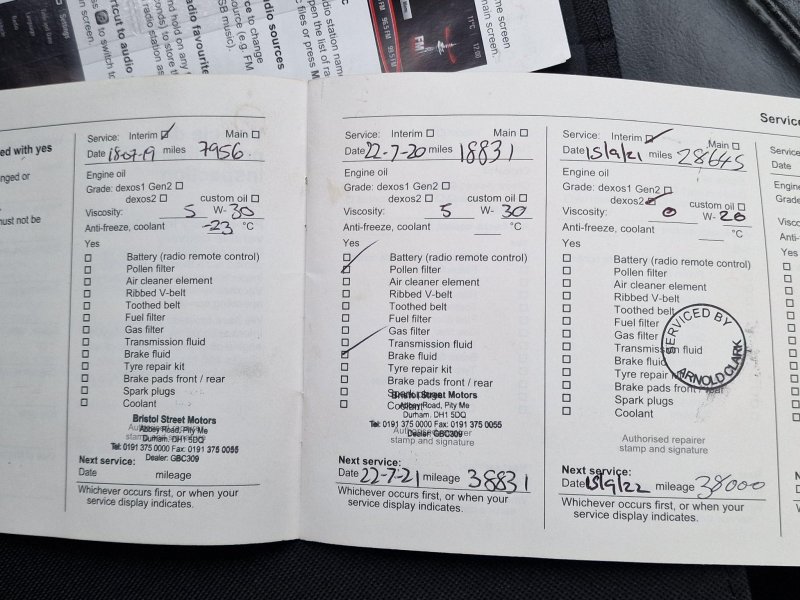 Settings
Language (Language)
Radio
shortcut to audio
to switch to
screen.
radio favourite
and hold on any
seconds) to store t
radio station as
SE music).
ce to change
source (e.g. FM
audio sources
adio station name
c files or press M
open the list of ra
main screen.
ome screen
ain screen.
FM
96.5 FM
99.5 FM
11°C
17:00
ed with yes
nged or
must not be
Service: Interim Main
Date 18-07-19 miles 7956.
Engine oil
Grade: dexos1 Gen2
dexos2 custom oil
Viscosity: 5 W- 30
Anti-freeze, coolant -23 °C
Yes
Battery (radio remote control)
Pollen filter
Air cleaner element
Ribbed V-belt
Toothed belt
Fuel filter
Gas filter
Transmission fluid
Brake fluid
Tyre repair kit
Brake pads front / rear
Spark plugs
Coolant
Bristol Street Motors
Abbey Road, Pity Me
Durham. DH1 5DQ
Tel: 0191 375 0000 Fax: 0191 375 0055
Dealer: GBC309
Next service:
Date mileage
Whichever occurs first, or when your
service display indicates.
Service: Interim Main
Date 22-7-20 miles 18831
Engine oil
Grade: dexos1 Gen2
dexos2 custom oil
Viscosity: 5 W- 30
Anti-freeze, coolant °C
Yes
Battery (radio remote control)
Pollen filter
Air cleaner element
Ribbed V-belt
Toothed belt
Fuel filter
Gas filter
Transmission fluid
Brake fluid
Tyre repair kit
Brake pads front / rear
Spark plugs
Coolant
Bristol Street Motors
Abbey Road, Pity Me
Durham. DH1 5DQ
Tel: 0191 375 0000 Fax: 0191 375 0055
Dealer: GBC309
Authorised repairer
stamp and signature
Next service:
Date 22-7-21 mileage 38831
Whichever occurs first, or when your
service display indicates.
Service
Service: Interim Main
Date 15/9/21 miles 28645
Engine oil
Grade: dexos1 Gen2
dexos2 custom oil
Viscosity: 0 W- 20
Anti-freeze, coolant °C
Yes
Battery (radio remote control)
Pollen filter
Air cleaner element
Ribbed V-belt
Toothed belt
Fuel filter
Gas filter
Transmission fluid
Brake fluid
Tyre repair kit
Brake pads front / rear
Spark plugs
Coolant
SERVICED BY
ARNOLD CLARK
Authorised repairer
stamp and signature
Next service:
Date 15/9/22 mileage 38000
Whichever occurs first, or when your
service display indicates.
Service:
Date
Engine
Grade:
Viscosity:
Anti-
Yes
Next
Date
Whic